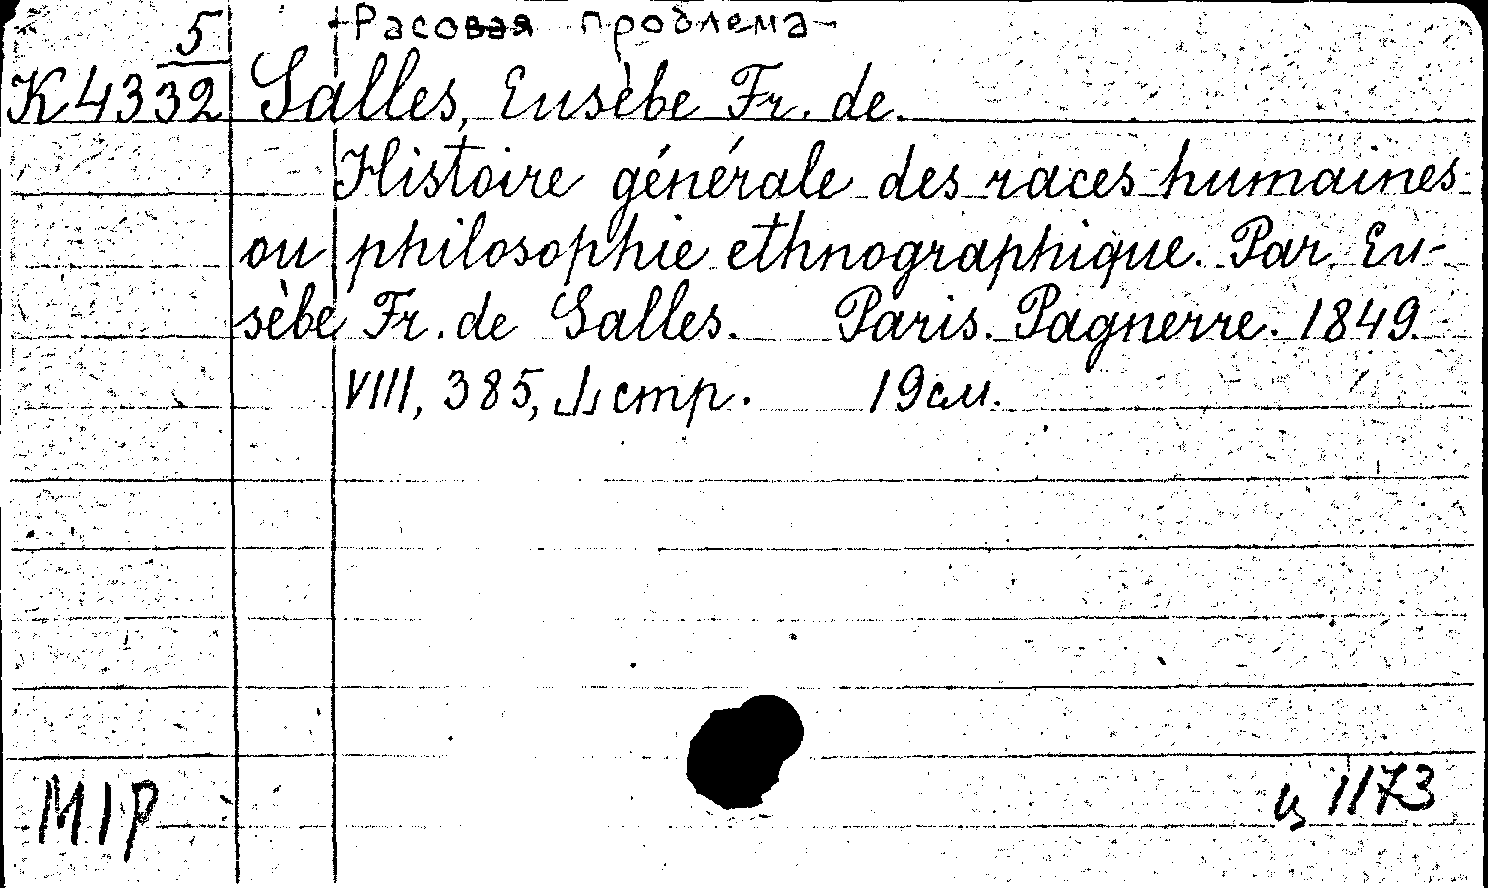 Расовая проблема
К43 5/32 Salles, Eusèbe Fr. de.
Histoire générale des races humaines
ou philosophie ethnographique. Par Eu-
sèbe Fr. de Salles. Paris. Pagnerre. 1849.
VIII, 385, стр. 19см.
М1р
1173